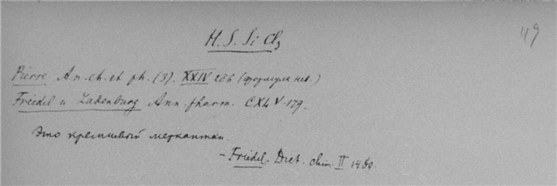 H.S.SiCl₃
49
Pierre An. ch. et ph. (3). XXIV 286 (формула нев.)
Friedel и Ladenburg Ann. pharm. CXLV. 179.
Это кремневый меркаптан
– Friedel. Dict. chim II 1480.